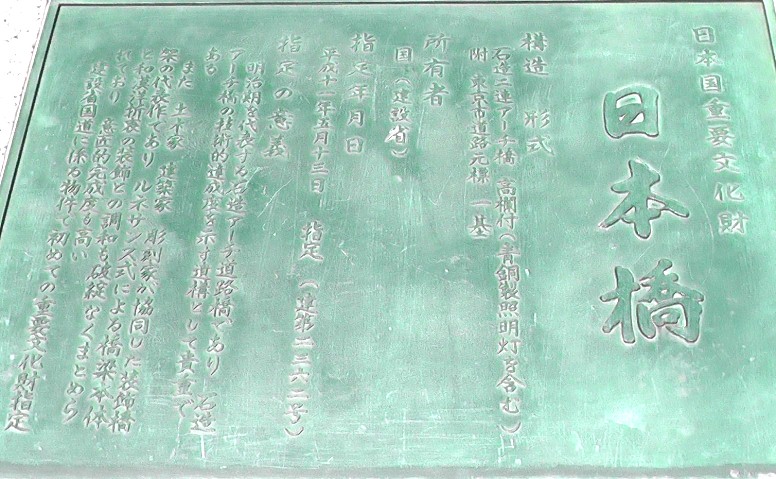 日本国重要文化財
日本橋
構造 形式
石造二連アーチ橋 高欄付(青銅製照明灯を含む)
附 東京市道路元標 一基
所有者
国(建設省)
指定年月日
平成十一年五月十三日 指定 (建第二三六二号)
指定の意義
明治期を代表する石造アーチ道路橋であり 石造
アーチ橋の技術的達成度を示す遺構として貴重で
ある
また 土木家 建築家 彫刻家が協同した装飾橋
架の代表作であり ルネサンス式による橋梁本体
と和漢洋折衷の装飾との調和も破綻なくまとめら
れており 意匠的完成度も高い
建設省国道に係る物件で初めての重要文化財指定